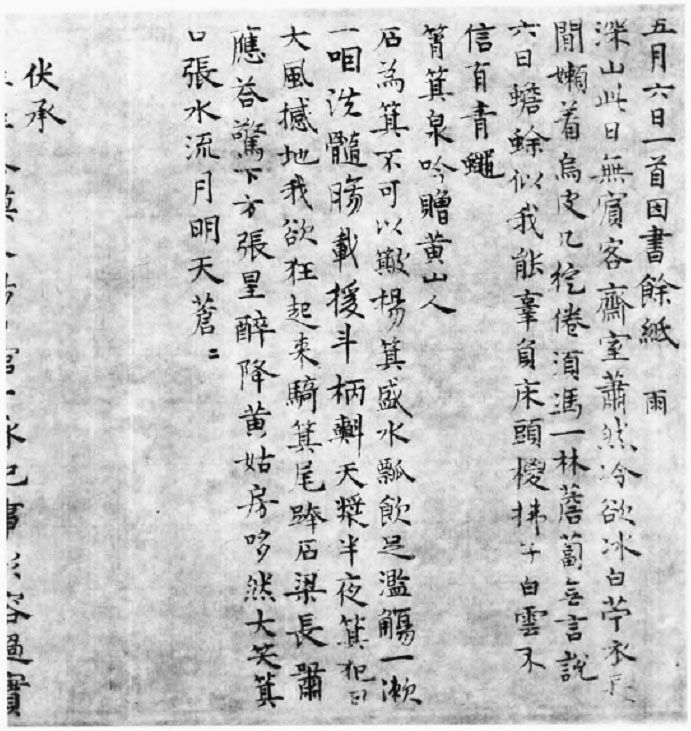 五月六日一首因書餘紙　雨
深山此日無賓客齋室蕭然冷欲冰白苧衣
閒嬾著烏皮几綻倦須馮一林薝蔔無言說
六日蟾蜍似我能辜負床頭椶拂子白雲不
信有青蠅
箵箕泉吟贈黃山人
石為箕不可以簸揚箕盛水瓢飲足濫觴一漱
一咽洗髓腸載援斗柄㪺天漿半夜箕犯
大風撼地我欲狂起來騎箕尾踔石梁長嘯
應荅驚下方張星醉降黃姑房哆然大笑箕
口張水流月明天蒼〻
伏承
事形容過實